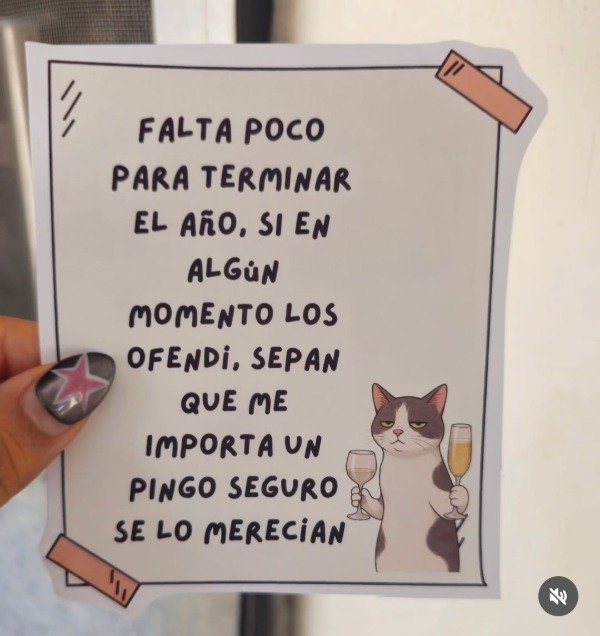 FALTA POCO
PARA TERMINAR
EL AÑO, SI EN
ALGÚN
MOMENTO LOS
OFENDÍ, SEPAN
QUE ME
IMPORTA UN
PINGO SEGURO
SE LO MERECÍAN